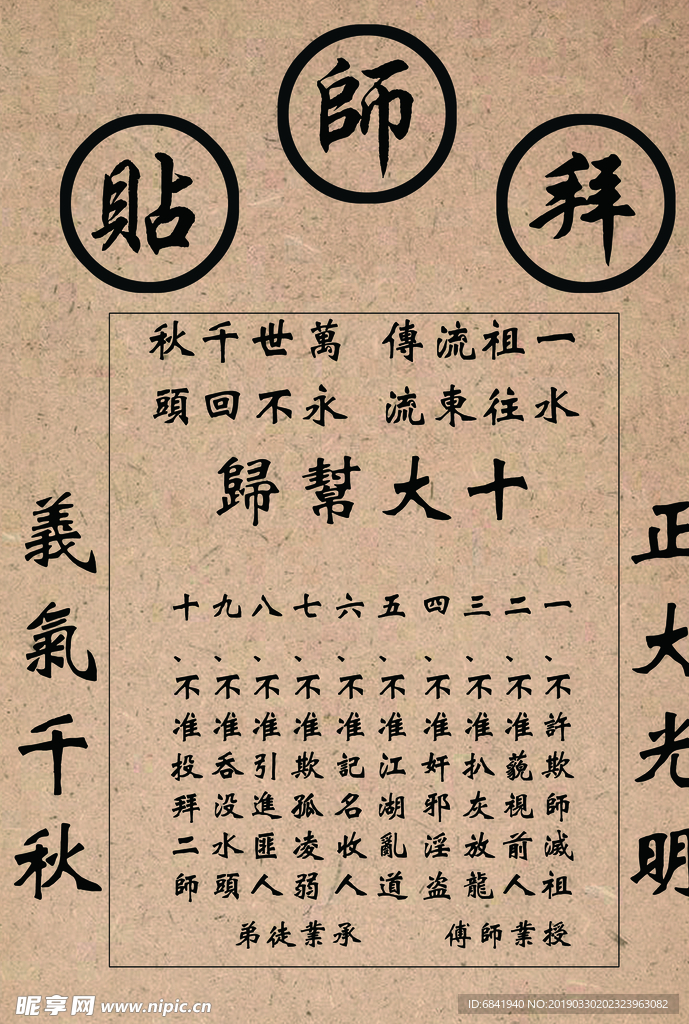 拜師貼
一祖流傳 萬世千秋
水往東流 永不回頭
十大幫歸
正大光明
一、不許欺師滅祖
二、不准藐視前人
三、不准扒灰放龍
四、不准奸邪淫盜
五、不准江湖亂道
六、不准記名收人
七、不准欺孤凌弱
八、不准引進匪人
九、不准吞没水頭
十、不准投拜二師
授業師傅
承業徒弟
義氣千秋
昵享网 www.nipic.cn
ID:6841940 NO:20190330202323963082